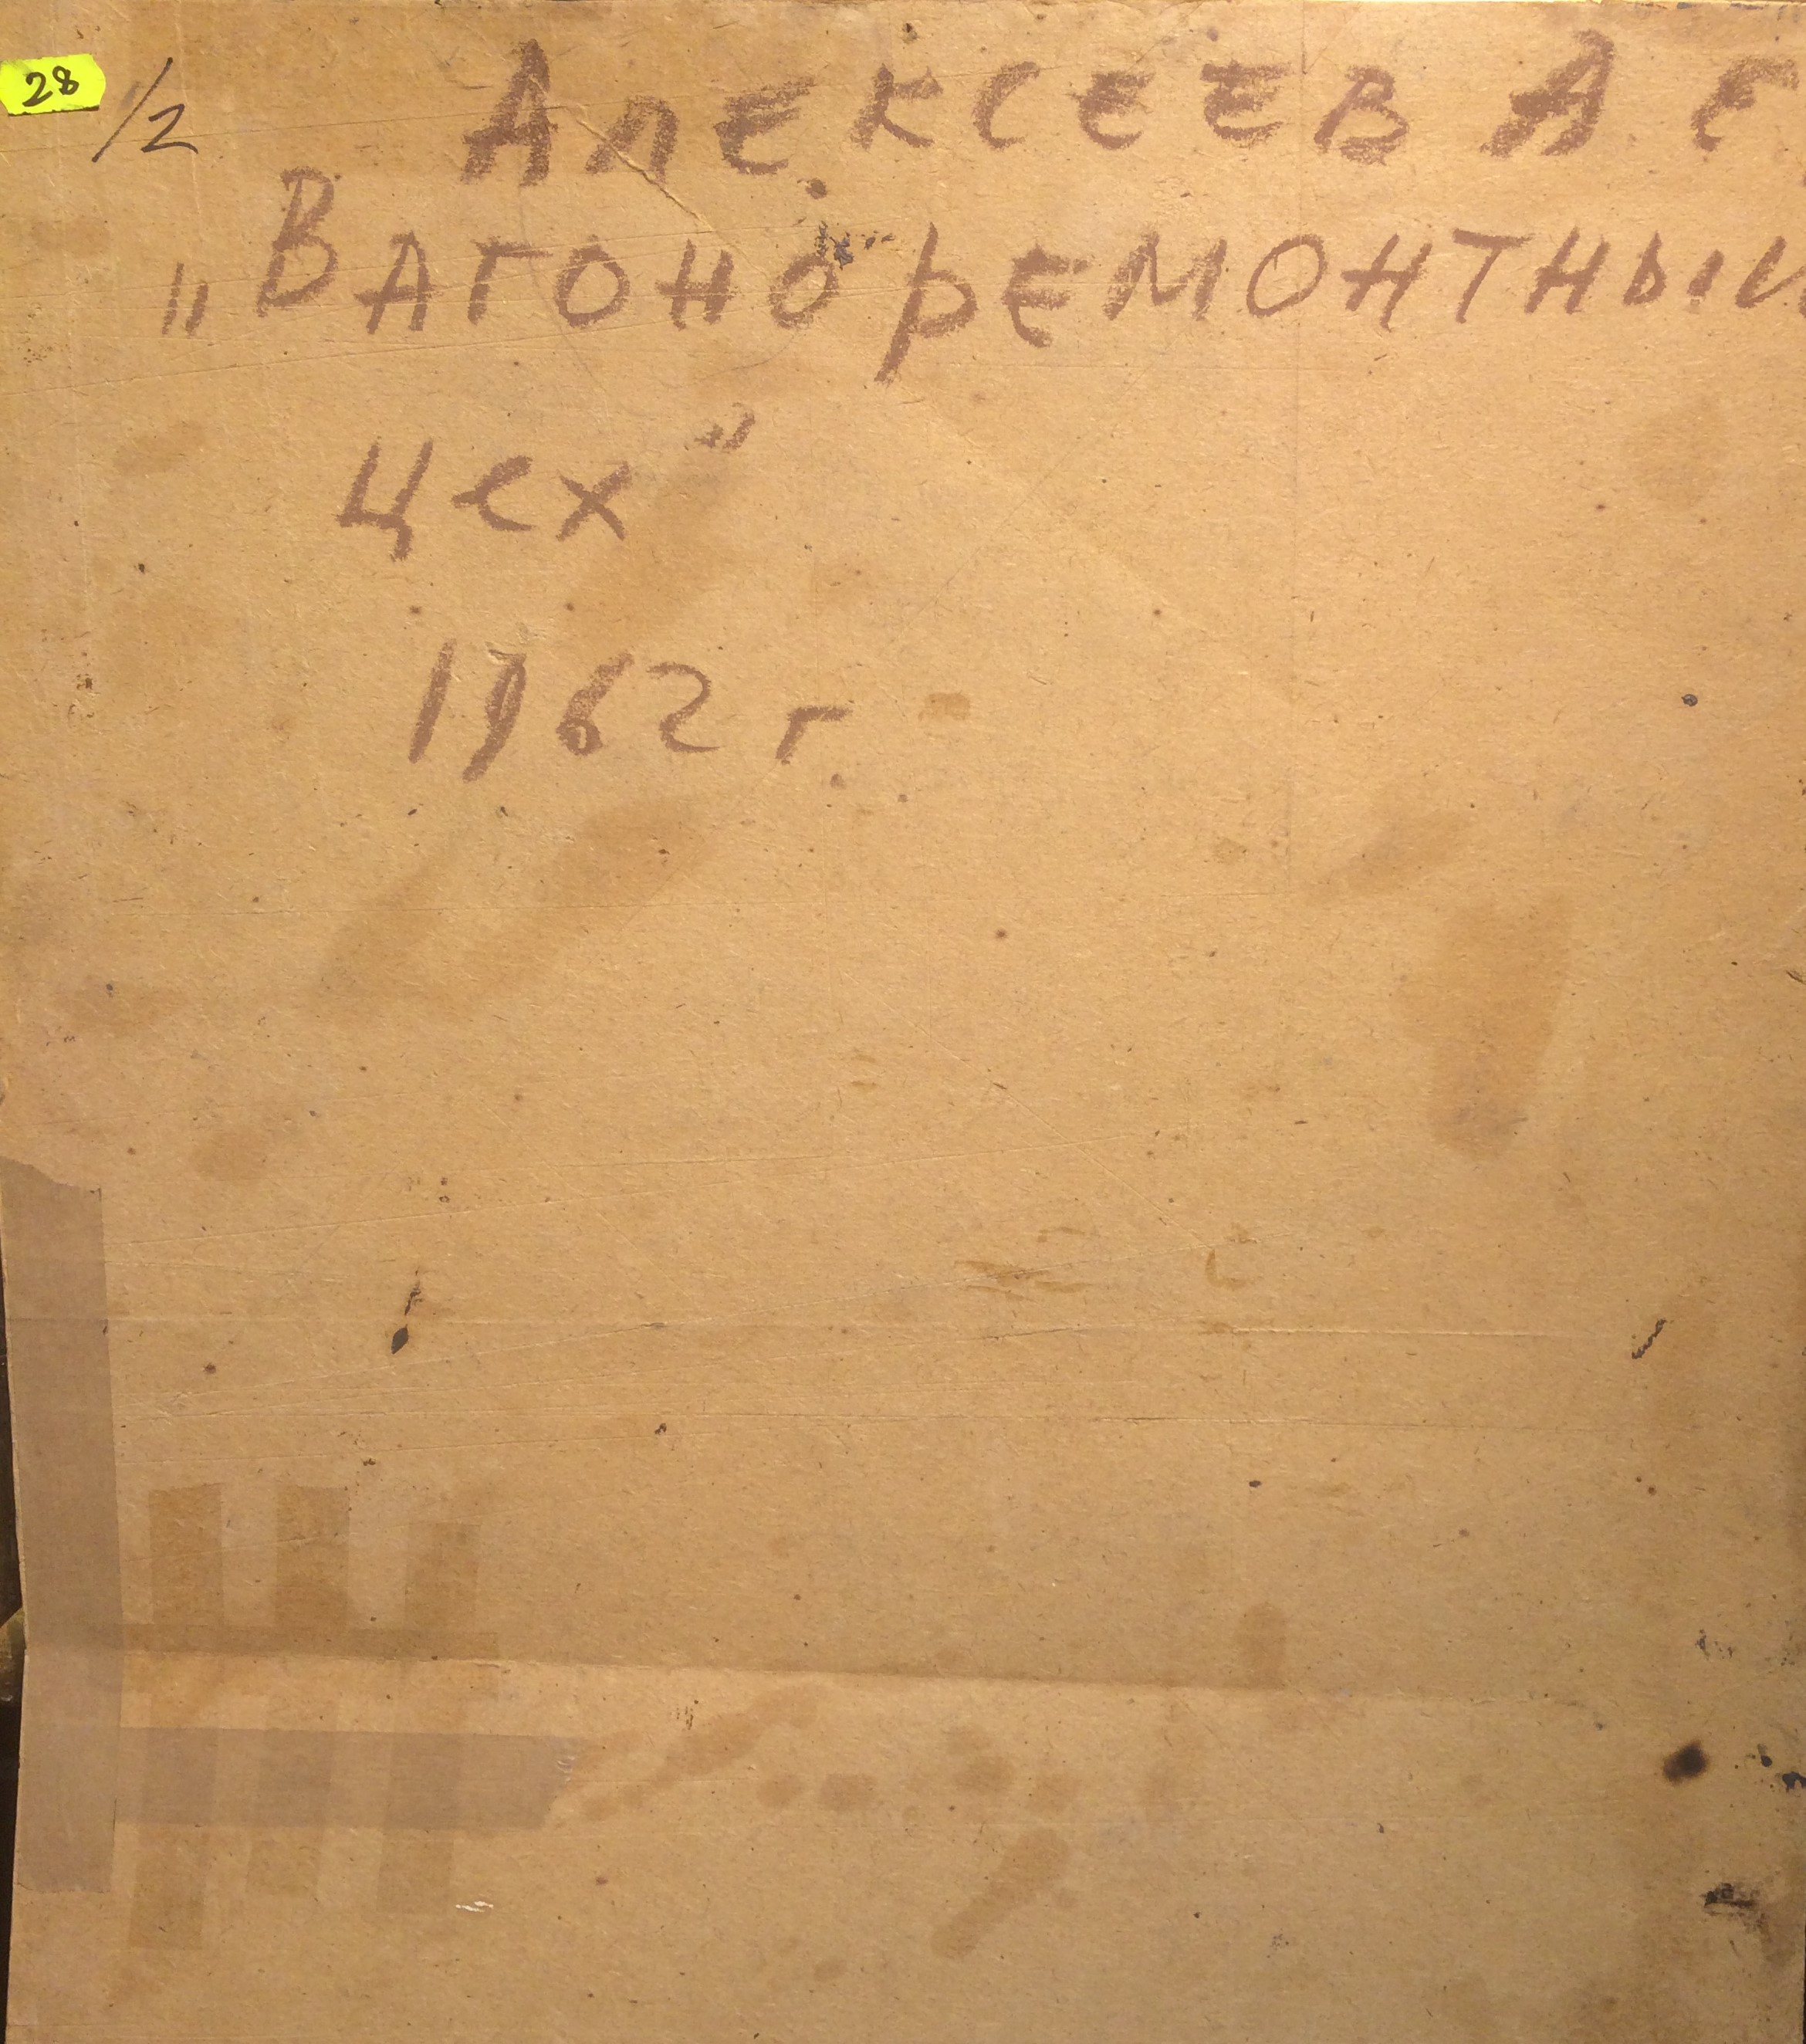 28
1/2
Алексеев А Е
„Вагоноремонтный
цех"
1962 г.